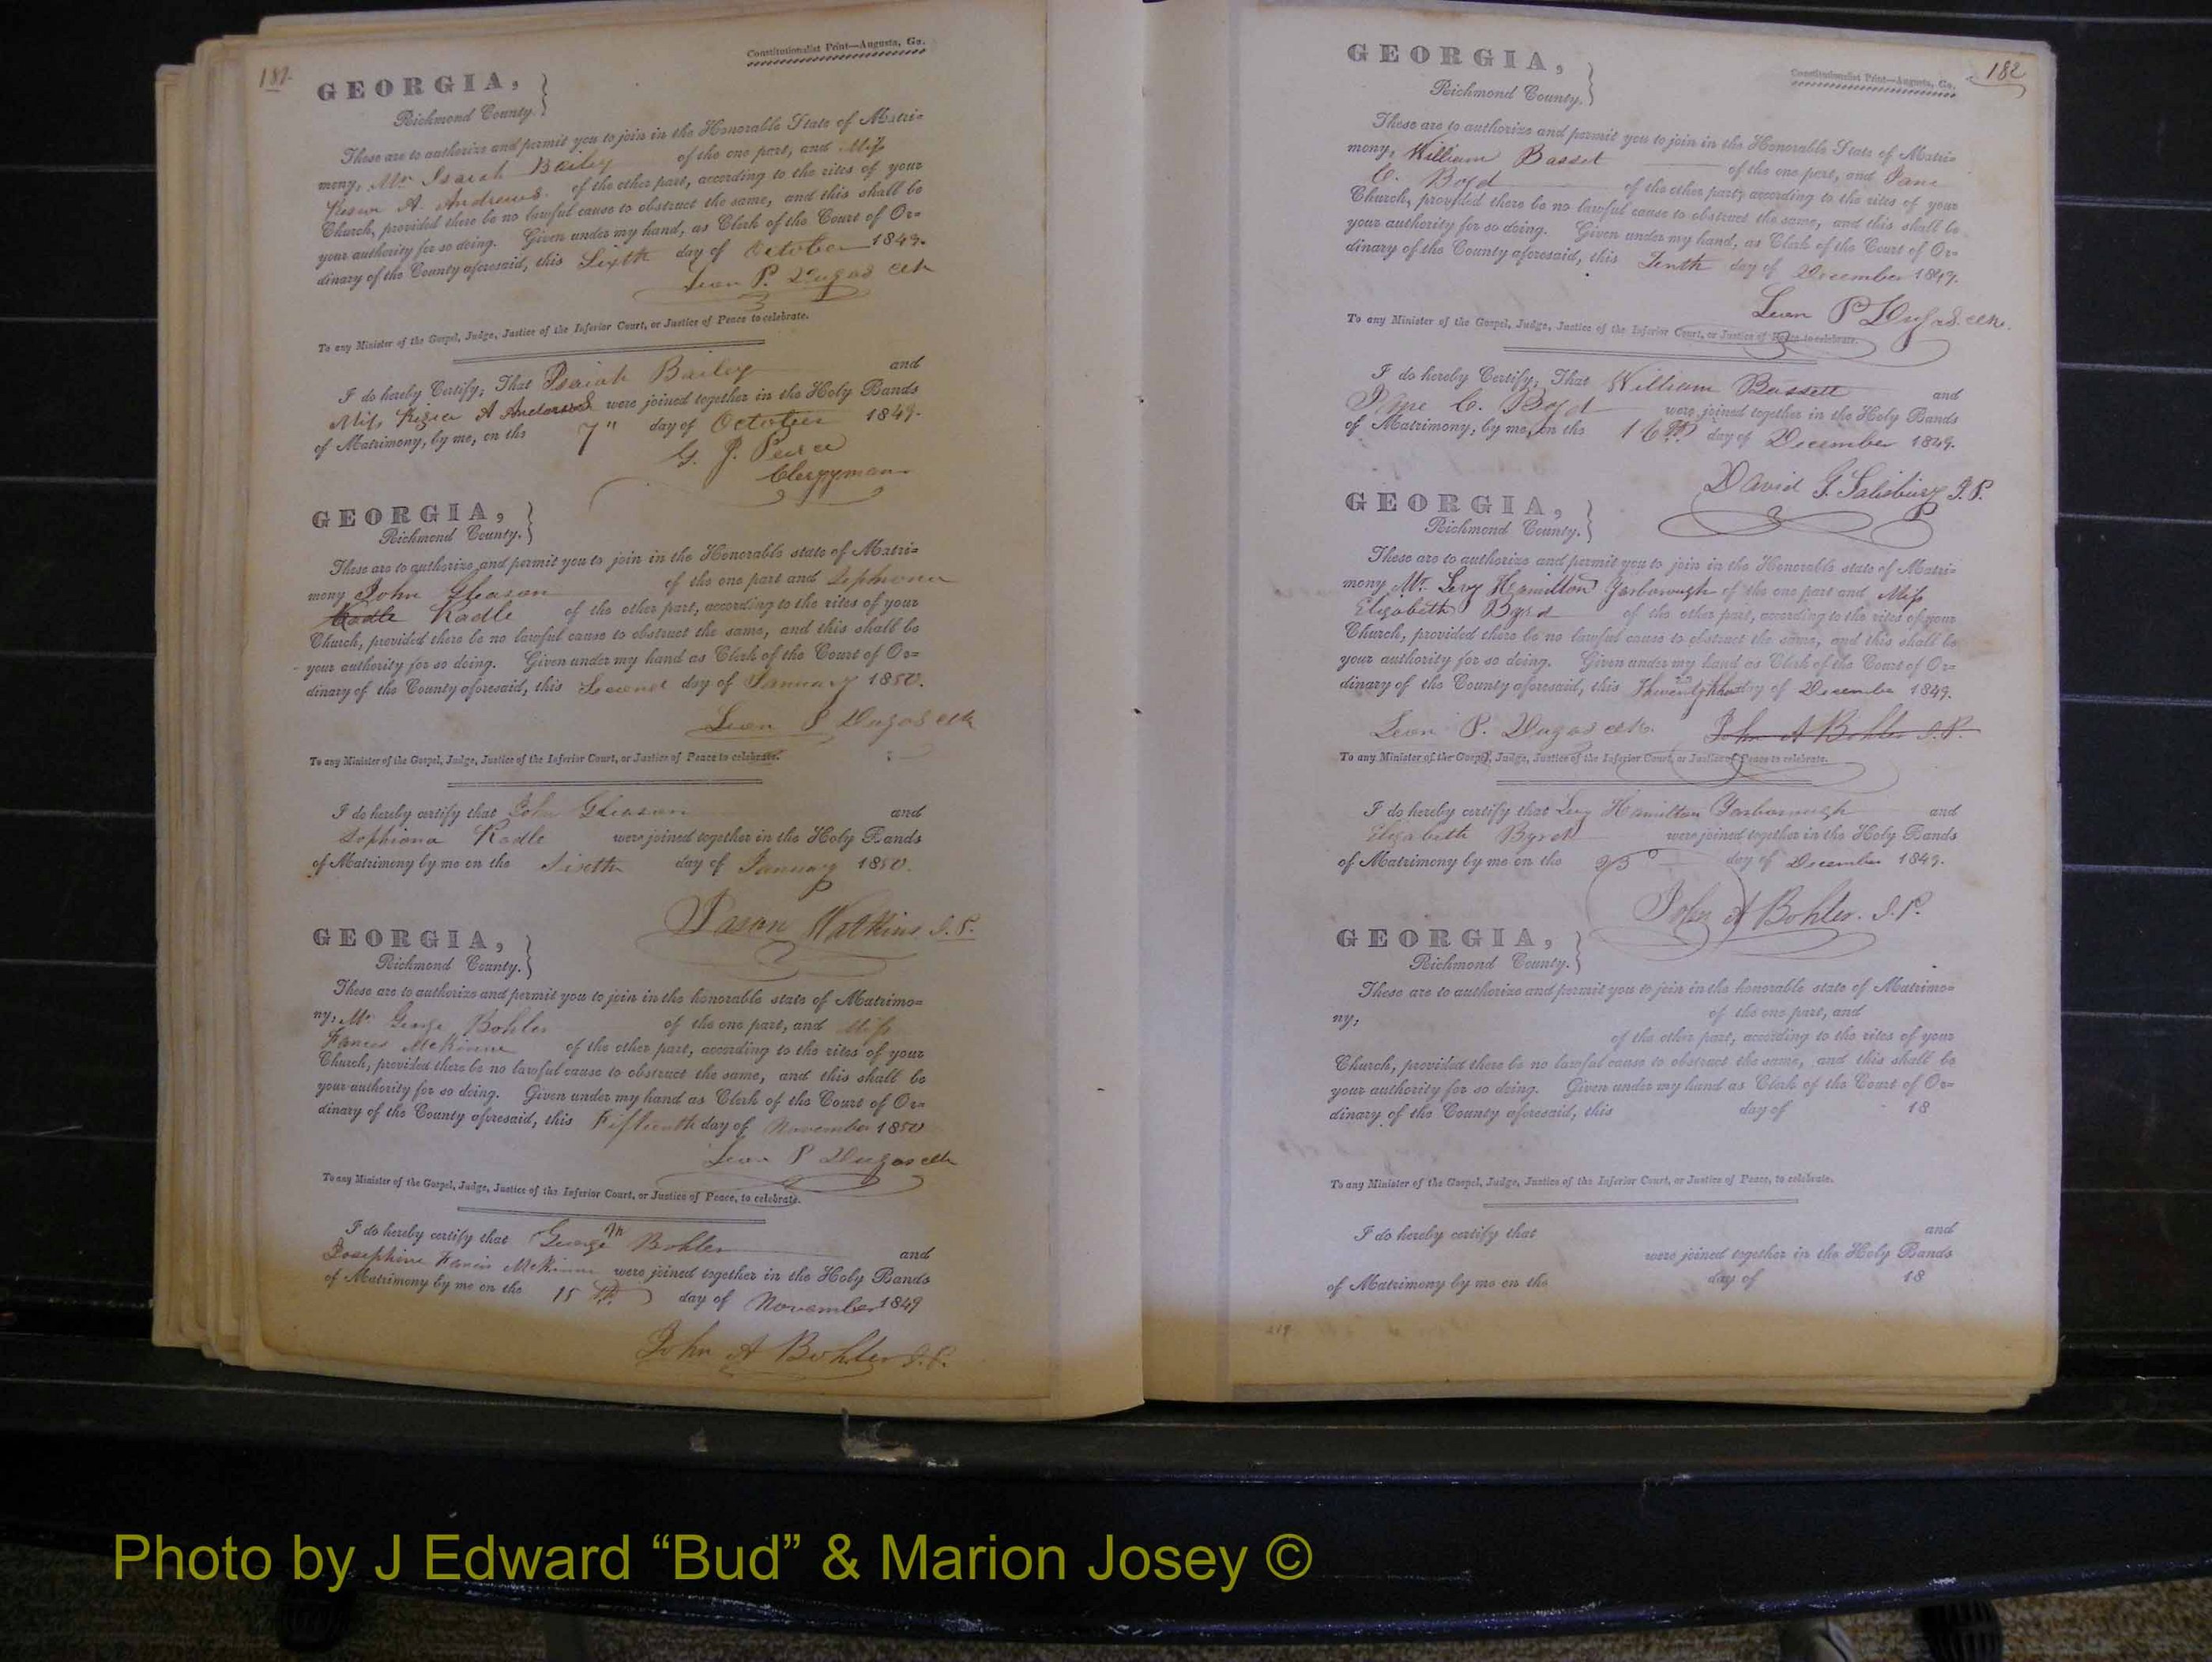 Constitutionalist Print—Augusta, Ga.
GEORGIA,
Richmond County.
These are to authorize and permit you to join in the Honorable State of Matri-
mony, Mr Isaiah Bailey of the one part, and Miss
A. Andrews. of the other part, according to the rites of your
Church, provided there be no lawful cause to obstruct the same, and this shall be
your authority for so doing. Given under my hand, as Clerk of the Court of Or-
dinary of the County aforesaid, this Sixth day of October 1849.
Leon P. Dugas clk
To any Minister of the Gospel, Judge, Justice of the Inferior Court, or Justice of Peace to celebrate.
I do hereby Certify, That Isaiah Bailey and
Miss A were joined together in the Holy Bands
of Matrimony, by me, on the 7" day of October 1849.
G. J. Pearce
Clergyman
GEORGIA,
Richmond County.
These are to authorize and permit you to join in the Honorable state of Matri-
mony John Gleason of the one part and Sophiona
Radle of the other part, according to the rites of your
Church, provided there be no lawful cause to obstruct the same, and this shall be
your authority for so doing. Given under my hand as Clerk of the Court of Or-
dinary of the County aforesaid, this Second day of January 1850.
Leon P Dugas clk
To any Minister of the Gospel, Judge, Justice of the Inferior Court, or Justice of Peace to celebrate.
I do hereby certify that John Gleason and
Sophiona Radle were joined together in the Holy Bands
of Matrimony by me on the day of January 1850.
Jason Watkins J.P.
GEORGIA,
Richmond County.
These are to authorize and permit you to join in the honorable state of Matrimo-
ny, Mr George Bohler of the one part, and Miss
Frances McKinne of the other part, according to the rites of your
Church, provided there be no lawful cause to obstruct the same, and this shall be
your authority for so doing. Given under my hand as Clerk of the Court of Or-
dinary of the County aforesaid, this Fifteenth day of November 1850
Leon P Dugas clk
To any Minister of the Gospel, Judge, Justice of the Inferior Court, or Justice of Peace, to celebrate.
I do hereby certify that George M Bohler and
Josephine Francis McKinne were joined together in the Holy Bands
of Matrimony by me on the 15th day of November 1849
John A Bohler J.P.
182
Constitutionalist Print—Augusta, Ga.
GEORGIA,
Richmond County.
These are to authorize and permit you to join in the Honorable State of Matri-
mony, William Basset of the one part, and Jane
C. Boyd of the other part, according to the rites of your
Church, provided there be no lawful cause to obstruct the same, and this shall be
your authority for so doing. Given under my hand, as Clerk of the Court of Or-
dinary of the County aforesaid, this Tenth day of December 1849.
Leon P Dugas clk.
To any Minister of the Gospel, Judge, Justice of the Inferior Court, or Justice of Peace to celebrate.
I do hereby Certify, That William Bassett and
Jane C. Boyd were joined together in the Holy Bands
of Matrimony, by me, on the 16th day of December 1849.
David G. Salisbury J.P.
GEORGIA,
Richmond County.
These are to authorize and permit you to join in the Honorable state of Matri-
mony Mr. Levy Hamilton Yarborough of the one part and Miss
Elizabeth Byrd of the other part, according to the rites of your
Church, provided there be no lawful cause to obstruct the same, and this shall be
your authority for so doing. Given under my hand as Clerk of the Court of Or-
dinary of the County aforesaid, this day of December 1849.
Leon P. Dugas clk. John A Bohler J.P.
To any Minister of the Gospel, Judge, Justice of the Inferior Court, or Justice of Peace to celebrate.
I do hereby certify that Levy Hamilton Yarborough and
Elizabeth Byrd were joined together in the Holy Bands
of Matrimony by me on the 23 day of December 1849.
John A Bohler. J.P.
GEORGIA,
Richmond County.
These are to authorize and permit you to join in the honorable state of Matrimo-
ny, of the one part, and
of the other part, according to the rites of your
Church, provided there be no lawful cause to obstruct the same, and this shall be
your authority for so doing. Given under my hand as Clerk of the Court of Or-
dinary of the County aforesaid, this day of 18
To any Minister of the Gospel, Judge, Justice of the Inferior Court, or Justice of Peace, to celebrate.
I do hereby certify that and
were joined together in the Holy Bands
of Matrimony by me on the day of 18
Photo by J Edward “Bud” & Marion Josey ©